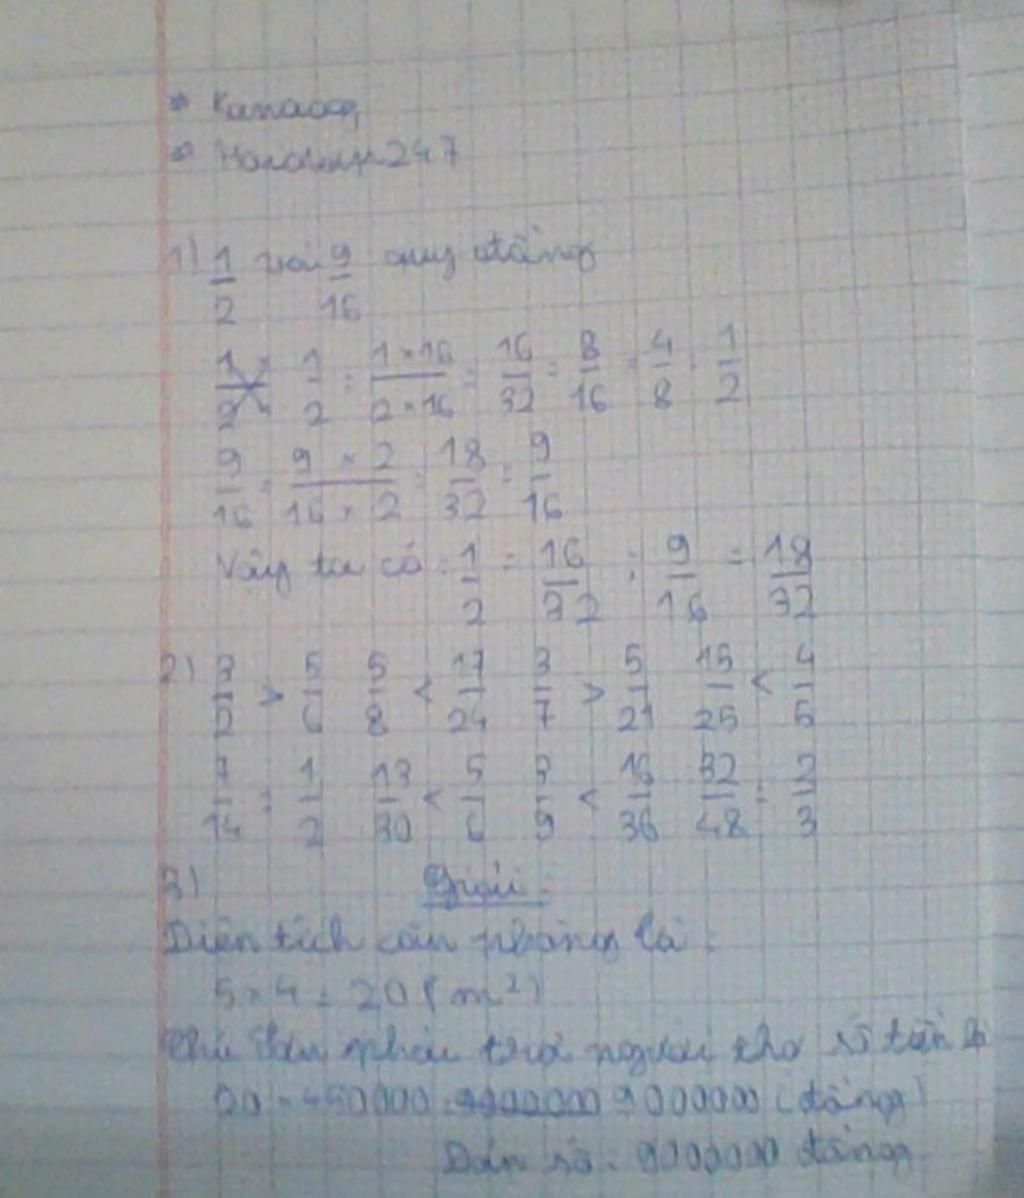 1) 1/2 và 9/16 quy đồng
1/2 = 1×16/2×16 = 16/32 = 8/16 = 4/8 = 1/2
9/16 = 9 × 2/16 × 2 = 18/32 = 9/16
Vậy ta có: 1/2 = 16/32 ; 9/16 = 18/32
2) 3/2 > 5/6 5/8 < 17/24 3/7 > 5/21 15/25 < 4/5
7/14 = 1/2 13/30 < 5/6 3/9 < 16/36 32/48 = 2/3
3) Giải:
Diện tích căn phòng là:
5 × 4 = 20 (m²)
phải trả người thợ số tiền là
20 × 450000 = 9000000 (đồng)
Đáp số: 9000000 đồng